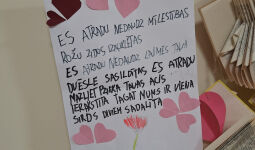 ES ATRADU NEDAUDZ MĪLESTĪBAS
ROŽU ZIEDOS IZKAISĪTAS
ES ATRADU NEDAUDZ LAIMES TAVĀ
DVĒSLĒ SASILDĪTĀS ES ATRADU
MAZLIET PRIEKA TAVĀS ACĪS
IERAKSTĪTA TAGAT MUMS IR VIENA
SIRDS DIVIEM SADALĪTA